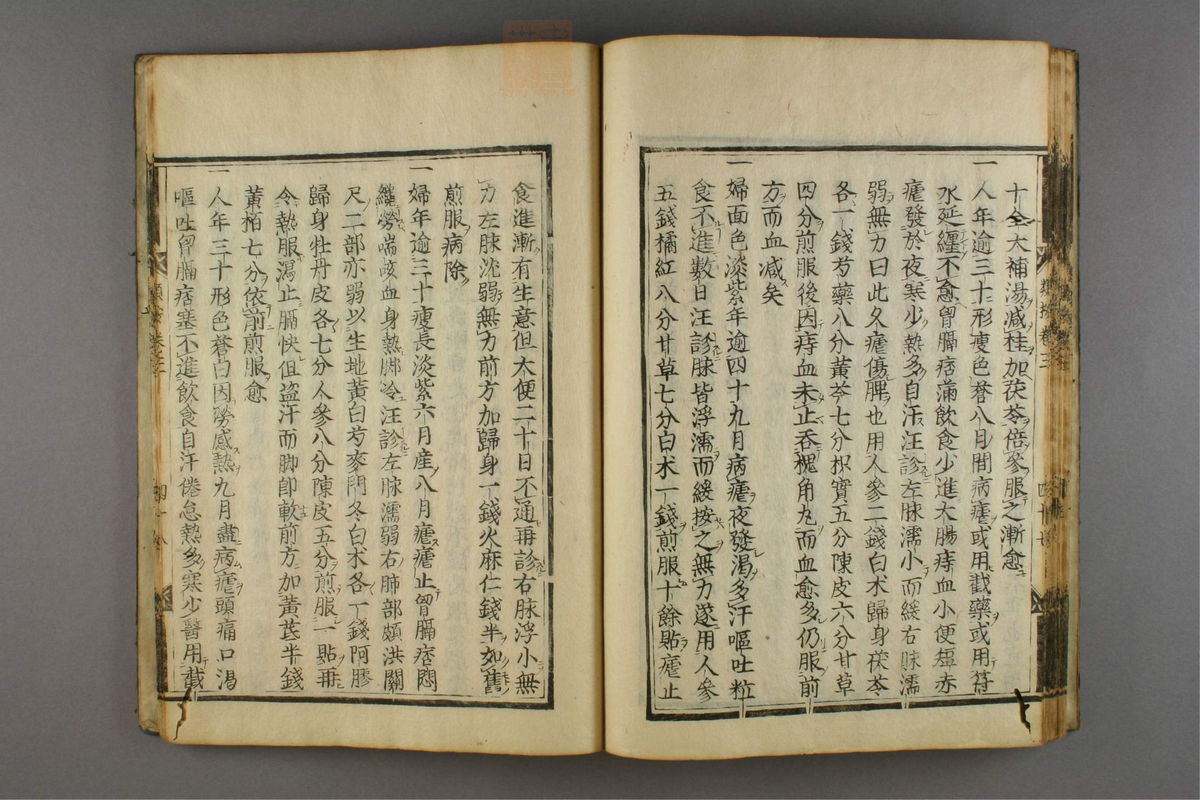 十全大補湯減桂加茯苓倍參服之漸愈
一人年逾三十形瘦色蒼八月間病瘧或用截藥或用符
水延纏不愈胷膈痞滿飲食少進大腸痔血小便短赤
瘧發於夜寒少熱多自汗汪診左脉濡小而緩右脉濡
弱無力曰此久瘧傷脾也用人參二錢白术歸身茯苓
各一錢芍藥八分黃芩七分枳實五分陳皮六分甘草
四分煎服後因痔血未止吞槐角丸而血愈多仍服前
方而血減矣
一婦面色淡紫年逾四十九月病瘧夜發渴多汗嘔吐粒
食不進數日汪診脉皆浮濡而緩按之無力遂用人參
五錢橘紅八分甘草七分白术一錢煎服十餘貼瘧止
食進漸有生意但大便二十日不通再診右脉浮小無
力左脉沈弱無力前方加歸身一錢火麻仁錢半如舊
煎服病除
一婦年逾三十瘦長淡紫六月產八月瘧瘧止胷膈痞悶
纔勞喘咳血身熱脚冷汪診左脉濡弱右肺部頗洪關
尺二部亦弱以生地黃白芍麥門冬白术各一錢阿膠
歸身牡丹皮各七分人參八分陳皮五分煎服一貼再
令熱服瀉止膈快但盜汗而脚卽軟前方加黃芪半錢
黃栢七分依前煎服愈
一人年三十形色蒼白因勞感熱九月盡病瘧頭痛口渴
嘔吐胷膈痞塞不進飲食自汗倦怠熱多寒少醫用截
類按卷之三
四十七
四十八